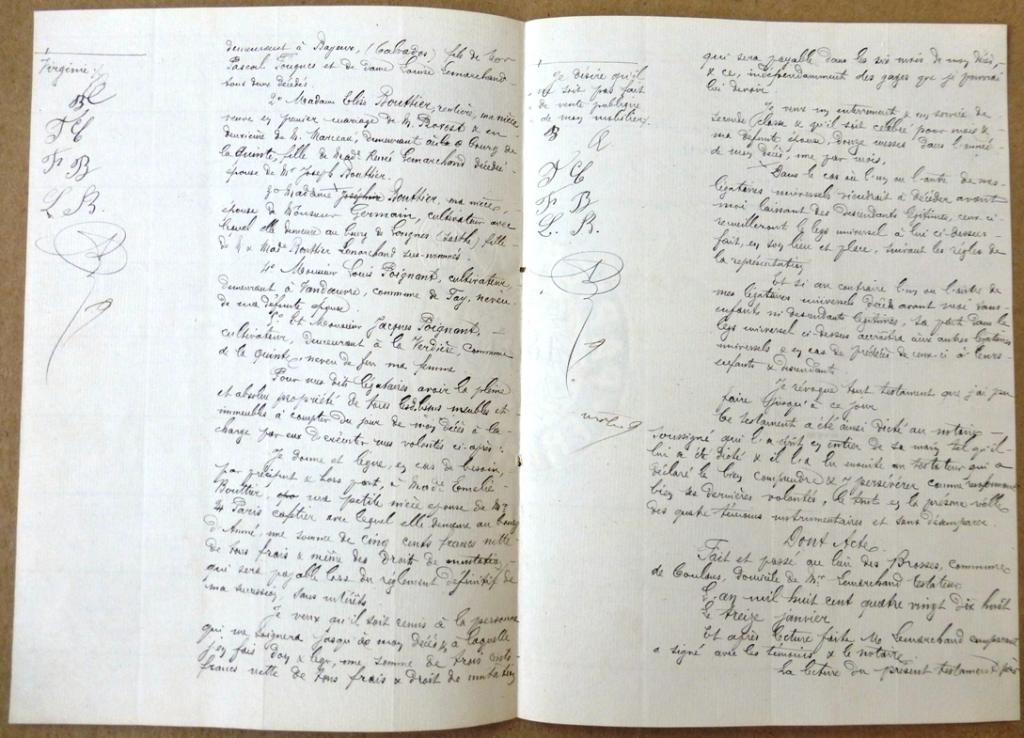 Virginie
B
T C
F B
L. B.
demeurant à Bayeux, (Calvados) fils de
Pascal Fougues et de dame Louise Lemarchand
tous deux décédés.
2° Madame Elise Bouttier, rentière, ma nièce
veuve en premier mariage de M. Borest & en
deuxième de M. Marceau, demeurant au bourg de
la Quinte, fille de Mad. René Lemarchand décédée
épouse de Mr Joseph Bouttier.
3° Madame Joséphine Bouttier, ma nièce,
épouse de Monsieur Germain, cultivateur avec
lequel elle demeure au bourg de Longnes (Sarthe) fille
de M. & Made Bouttier Lemarchand sus-nommés.
4° Monsieur Louis Poignant, cultivateur,
demeurant à Vandœuvre, commune de Tay, neveu
de ma défunte épouse.
5° Et Monsieur Jacques Poignant,
cultivateur, demeurant à la Verdière, commune
de la Quinte, neveu de feu ma femme
Pour mes dits légataires, avoir la pleine
et absolue propriété de tous les biens meubles et
immeubles à compter du jour de mon décès à la
charge par eux d'exécuter mes volontés ci-après :
Je donne et lègue, en cas de besoin,
par préciput & hors part, à Made Emélie
Bouttier, ma petite nièce épouse de Mr
Paris avec lequel elle demeure au bourg
d'Amné, une somme de cinq cents francs nette
de tous frais & même des droit de mutation
qui sera payable lors du règlement définitif de
ma succession, sans intérêts.
Je veux qu'il soit remis à la personne
qui me soignera jusqu'à mon décès & à laquelle
j'en fais don & legs, une somme de trois cents
francs nette de tous frais & droit de mutation
Je désire qu'il
ne soit pas fait
de vente publique
de mon mobilier.
B
T C
F B
L. B.
qui sera payable dans les six mois de mon décès,
& ce, indépendamment des gages que je pourrai
lui devoir.
Je veux un enterrement & un service de
seconde classe & qu'il soit célébré pour moi &
ma défunte épouse, douze messes dans l'année
de mon décès, une par mois.
Dans le cas où l'un ou l'autre de mes
légataires universels viendrait à décéder avant
moi laissant des descendants légitimes, ceux-ci
recueilleront le legs universel à lui ci-dessus
fait, en son lieu et place, suivant les règles de
la représentation
Et si au contraire l'un ou l'autre de
mes légataires universels décède avant moi sans
enfants ni descendants légitimes, sa part dans le
legs universel ci-dessus accroîtra aux autres légataires
universels & en cas de prédécès de ceux-ci à leurs
enfants & descendants.
Je révoque tout testament que j'ai pu
faire jusqu'à ce jour
Ce testament a été ainsi dicté au notaire
soussigné qui l'a écrit en entier de sa main tel qu'il
lui a été dicté & il l'a lu ensuite au testateur qui a
déclaré le bien comprendre & y persévérer comme renfermant
bien ses dernières volontés, le tout en la présence réelle
des quatre témoins instrumentaires et sans désemparer.
Dont Acte.
Fait et passé au lieu des Brosses, commune
de Coulans, domicile de Mr Lemarchand testateur
L'an mil huit cent quatre vingt dix huit
Le treize janvier
Et après lecture faite Mr Lemarchand comparant
a signé avec les témoins & le notaire
La lecture du présent testament